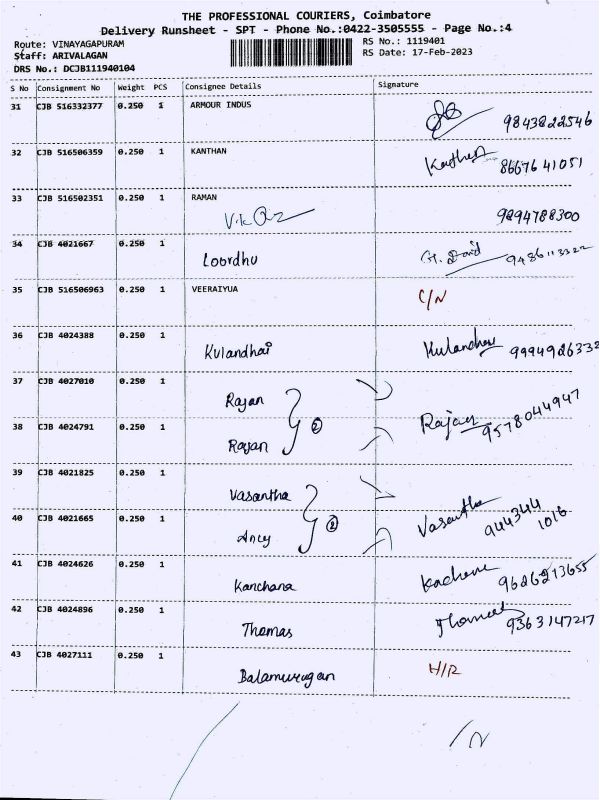 THE PROFESSIONAL COURIERS, Coimbatore
Delivery Runsheet - SPT - Phone No.:0422-3505555 - Page No.:4
Route: VINAYAGAPURAM RS No.: 1119401
Staff: ARIVALAGAN RS Date: 17-Feb-2023
DRS No.: DCJB111940104
S No Consignment No Weight PCS Consignee Details Signature
31 CJB 516332377 0.250 1 ARMOUR INDUS 9843822546
32 CJB 516506359 0.250 1 KANTHAN Kathen 8667641051
33 CJB 516502351 0.250 1 RAMAN 9894788300
34 CJB 4021667 0.250 1 Loordhu
35 CJB 516506963 0.250 1 VEERAIYUA C/N
36 CJB 4024388 0.250 1 Kulandhai 9994926332
37 CJB 4027010 0.250 1 Rajan
② Rajan 9578044947
38 CJB 4024791 0.250 1 Rajan
39 CJB 4021825 0.250 1 Vasantha
② Vasantha 944344
1016
40 CJB 4021665 0.250 1 Ancy
41 CJB 4024626 0.250 1 Kanchana 9626213655
42 CJB 4024896 0.250 1 Thomas 9363147217
43 CJB 4027111 0.250 1 Balamurugan H/R